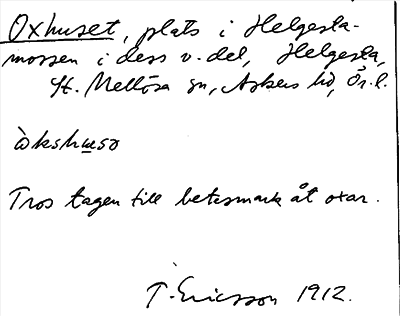 Oxhuset, plats i Helgesta-
mossen i dess v. del, Helgesta,
St. Mellösa sn, Askers hd, Ör. l.
òkshuso
Tros tagen till betesmark åt oxar.
T. Ericsson 1912.